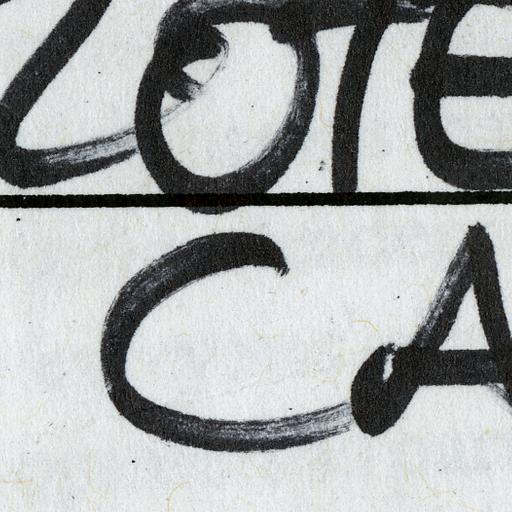 ZOTE
CA